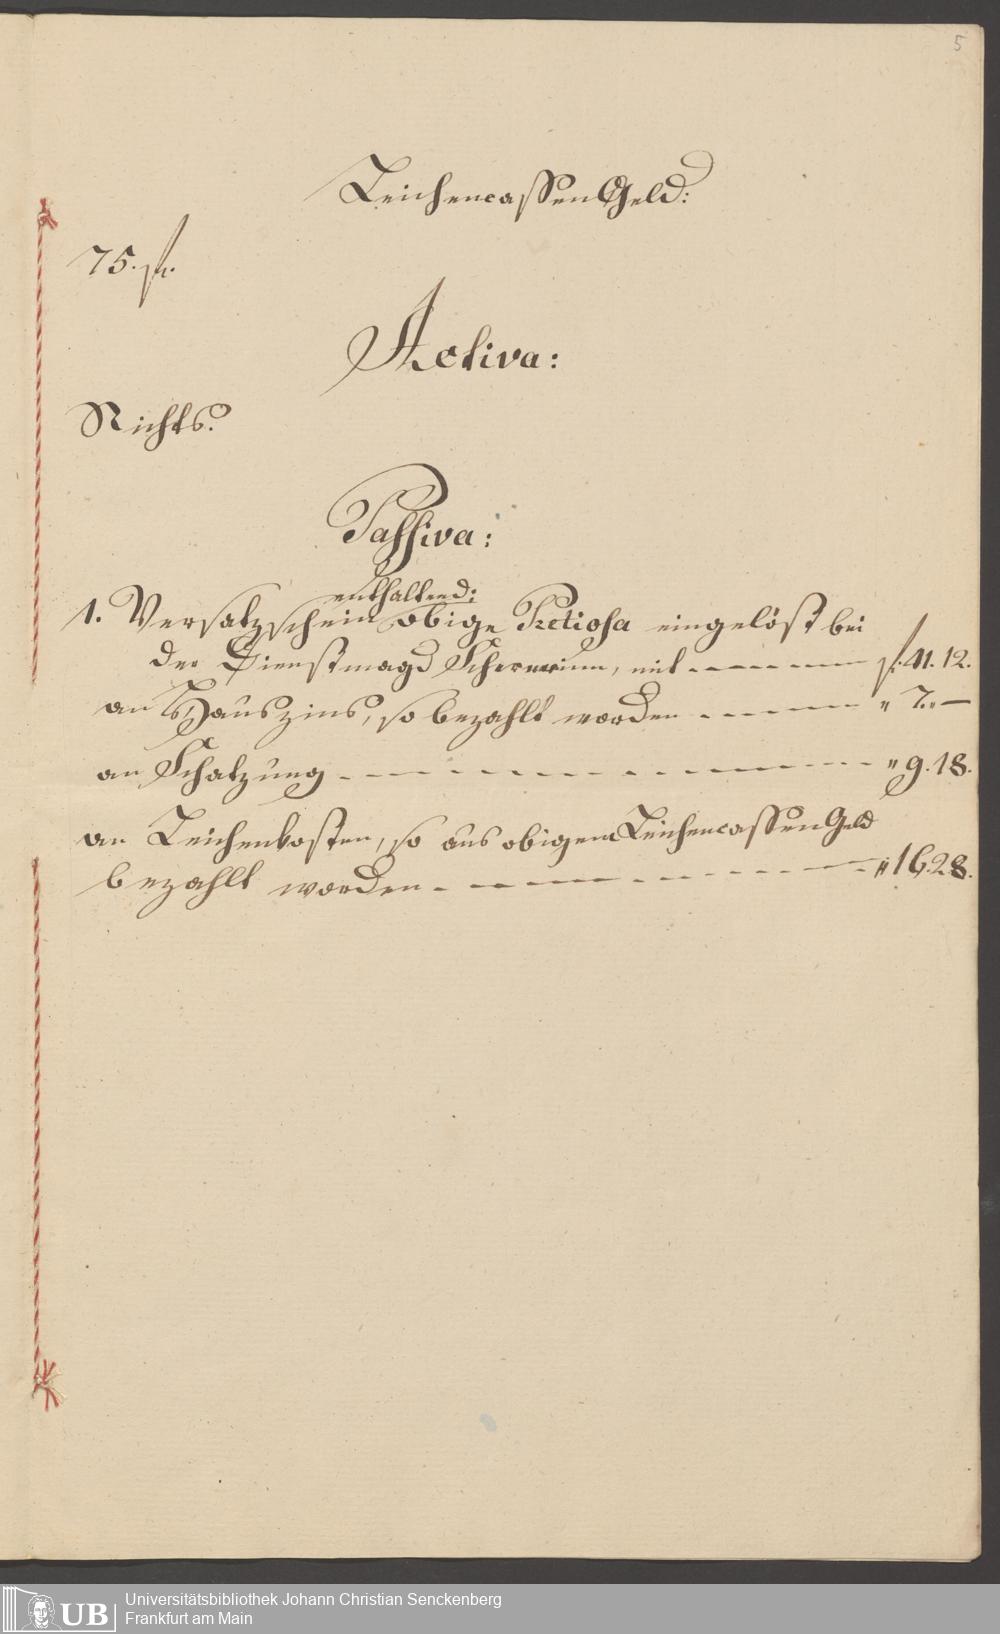 5
LeichencassenGeld:
75. fl.
Activa:
Nichts.
Passiva:
enthaltend:
1. Versatzschein obige Pretiosa eingelöst bei
der Dienstmagd mit fl. 41. 12.
an Hauszins, so bezahlt worden " 7. " —
an Schatzung " 9. 18.
an Leichenkosten, so aus obigem LeichencassenGeld
bezahlt worden " 16. 28.
UB
Universitätsbibliothek Johann Christian Senckenberg
Frankfurt am Main